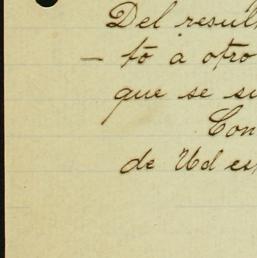 Del resul
- tó a otro
que se su
Con
de Ud es